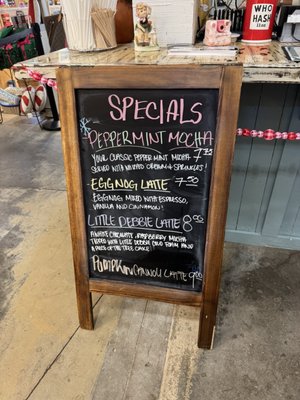 WHO
HASH
SPECIALS
PEPPERMINT MOCHA
7.75
YOUR CLASSIC PEPPERMINT MOCHA
SERVED WITH WHIPPED CREAM & SPRINKLES!
EGGNOG LATTE 7.50
EGGNOG MIXED WITH ESPRESSO,
VANILLA AND CINNAMON!
LITTLE DEBBIE LATTE 8.00
A WHITE CHOCOLATE, RASPBERRY MOCHA
TOPPED WITH LITTLE DEBBIE COLD FOAM AND
A PIECE OF THE TREE CAKE!
PUMPKIN CANNOLI LATTE 9.00